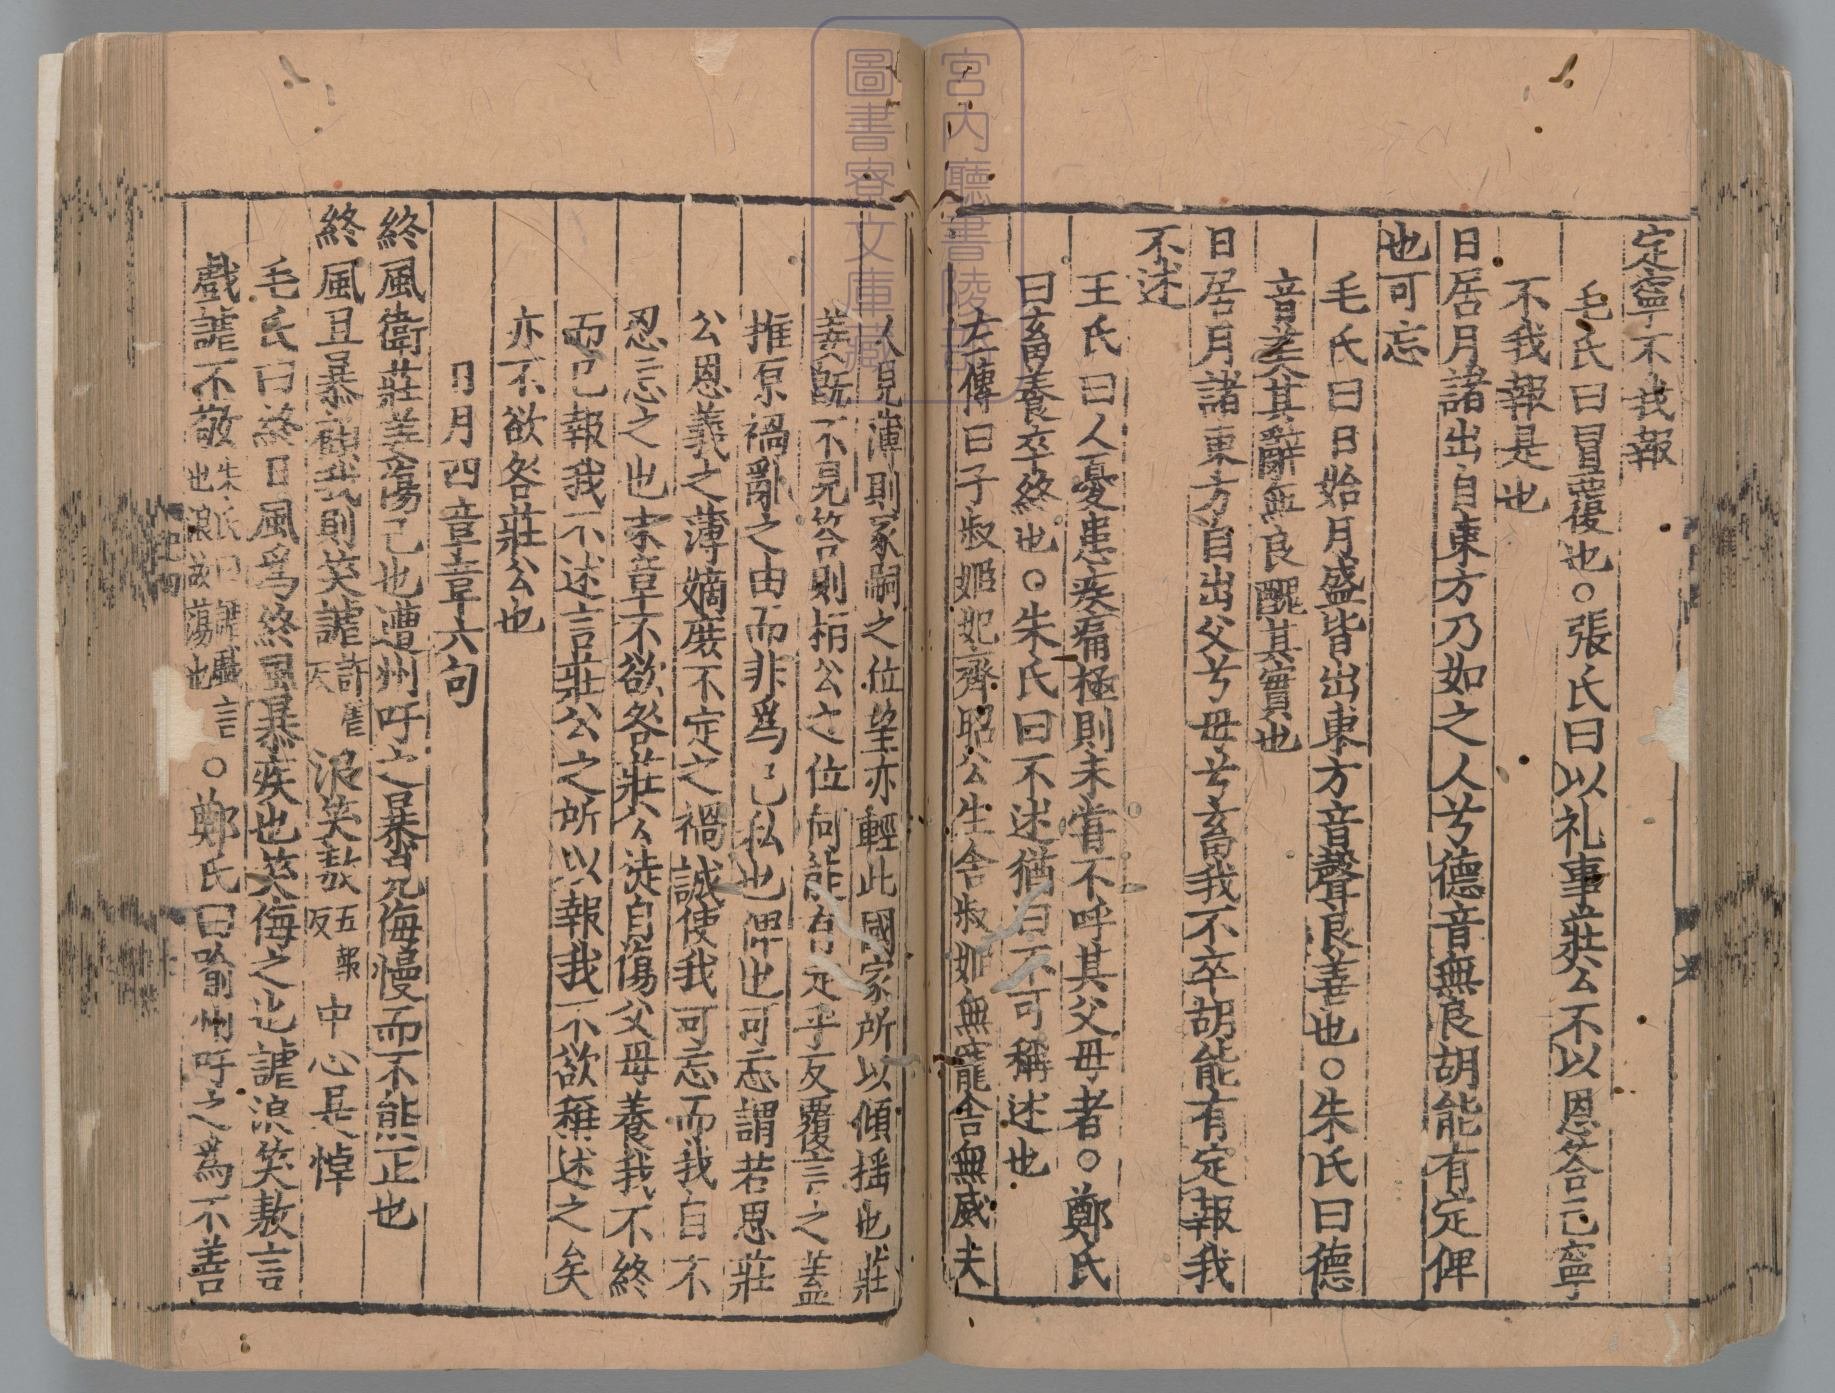 定寧不我報
毛氏曰冒覆也○張氏曰以礼事莊公不以恩答己寧
不我報是也
日居月諸出自東方乃如之人兮德音無良胡能有定俾
也可忘
毛氏曰日始月盛皆出東方音聲良善也○朱氏曰德
音美其辭無良醜其實也
日居月諸東方自出父兮母兮畜我不卒胡能有定報我
不述
王氏曰人憂患疾痛極則未嘗不呼其父母者○鄭氏
曰畜養卒終也○朱氏曰不述猶曰不可稱述也
左傳曰子叔姬妃齊昭公生舍叔姬無寵舍無威夫
以見薄則冢嗣之位望亦輕此國家所以傾揺也莊
姜既不見答則栢公之位何能有定乎反覆言之蓋
推原禍亂之由而非爲己私也俾也可忘謂若思莊
公恩義之薄嫡庶不定之禍誠使我可忘而我自不
忍忘之也末章不欲咎莊公徒自傷父母養我不終
而已報我不述言莊公之所以報我不欲稱述之矣
亦不欲咎莊公也
日月四章章六句
終風衛莊姜傷己也遭州吁之暴見侮慢而不能正也
終風且暴顧我則笑謔許虐反浪笑敖五報反中心是悼
毛氏曰終日風爲終風暴疾也笑侮之也謔浪笑敖言
戲謔不敬朱氏曰謔戲言也浪放蕩也○鄭氏曰喻州吁之為不善
宮内廳書陵部
圖書寮文庫藏